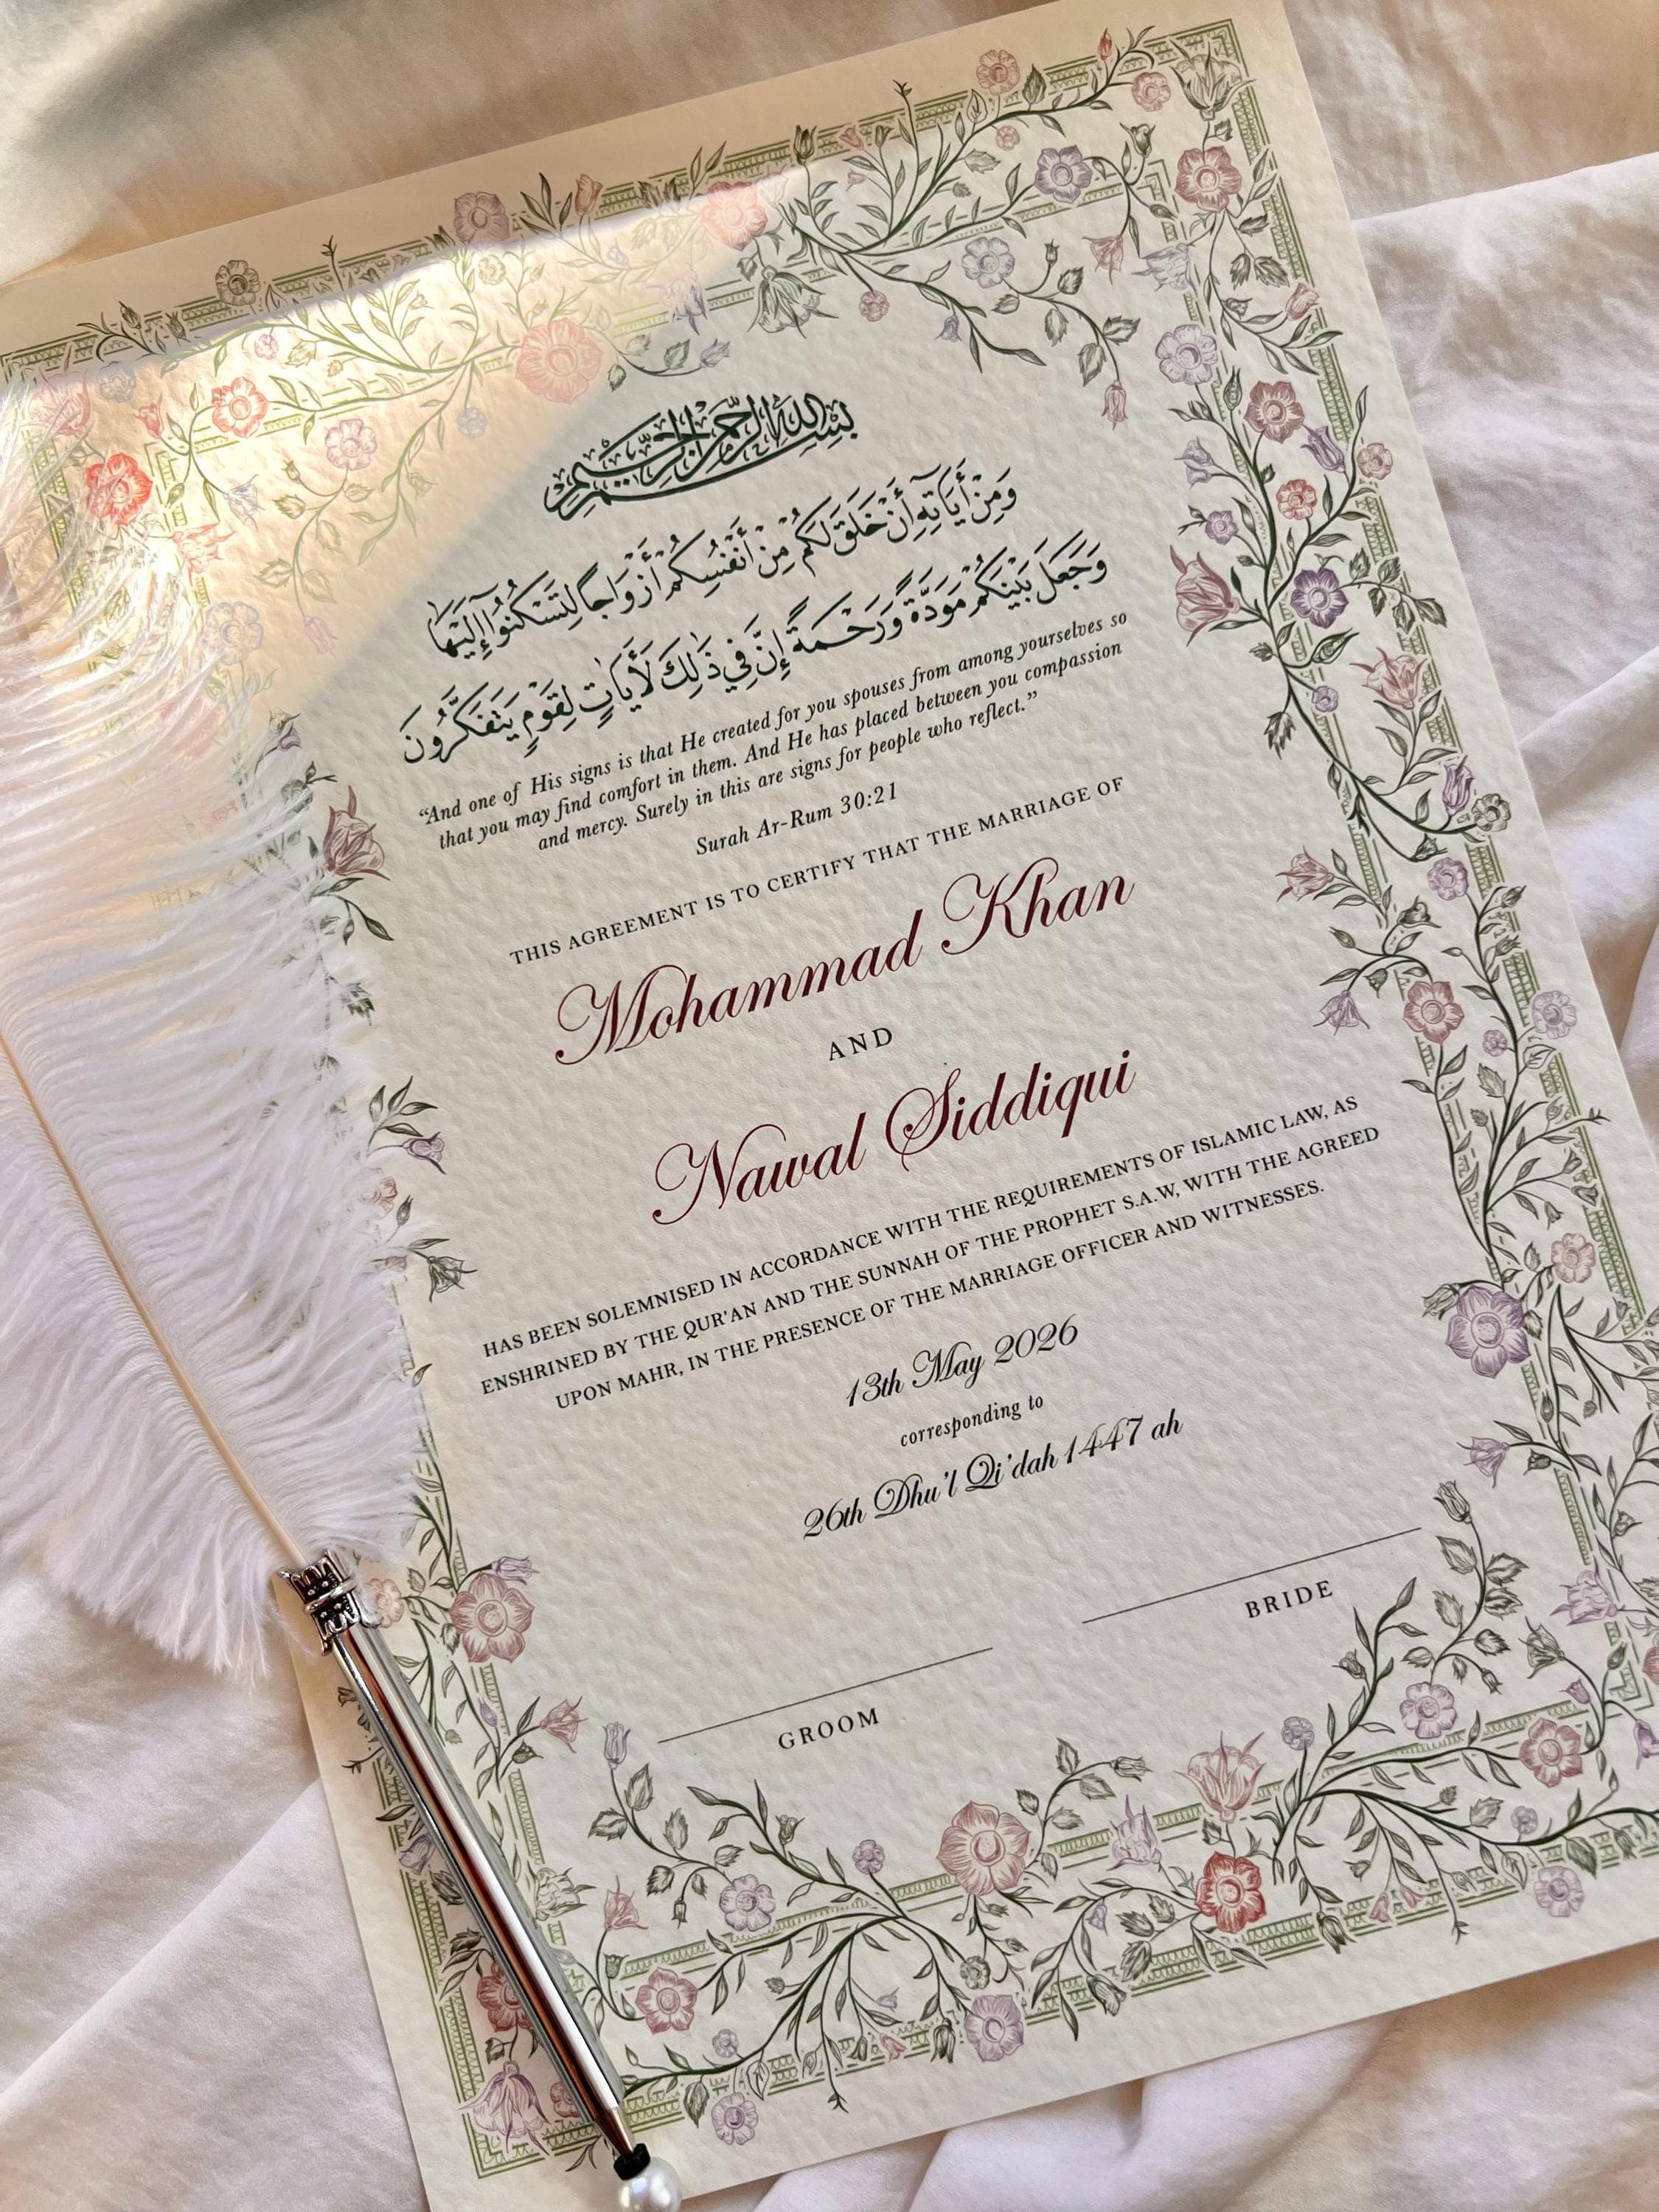 بِسْمِ اللهِ الرَّحْمٰنِ الرَّحِيْمِ
وَمِنْ أَيَاتِهِ أَنْ خَلَقَ لَكُمْ مِنْ أَنْفُسِكُمْ أَزْوَاجًا لِتَسْكُنُوا إِلَيْهَا
وَجَعَلَ بَيْنَكُمْ مَوَدَّةً وَرَحْمَةً إِنَّ فِي ذَٰلِكَ لَأَيَاتٍ لِقَوْمٍ يَتَفَكَّرُونَ
“And one of His signs is that He created for you spouses from among yourselves so
that you may find comfort in them. And He has placed between you compassion
and mercy. Surely in this are signs for people who reflect.”
Surah Ar-Rum 30:21
THIS AGREEMENT IS TO CERTIFY THAT THE MARRIAGE OF
Mohammad Khan
AND
Nawal Siddiqui
HAS BEEN SOLEMNISED IN ACCORDANCE WITH THE REQUIREMENTS OF ISLAMIC LAW, AS
ENSHRINED BY THE QUR'AN AND THE SUNNAH OF THE PROPHET S.A.W, WITH THE AGREED
UPON MAHR, IN THE PRESENCE OF THE MARRIAGE OFFICER AND WITNESSES.
13th May 2026
corresponding to
26th Dhu'l Qi'dah 1447 ah
BRIDE
GROOM